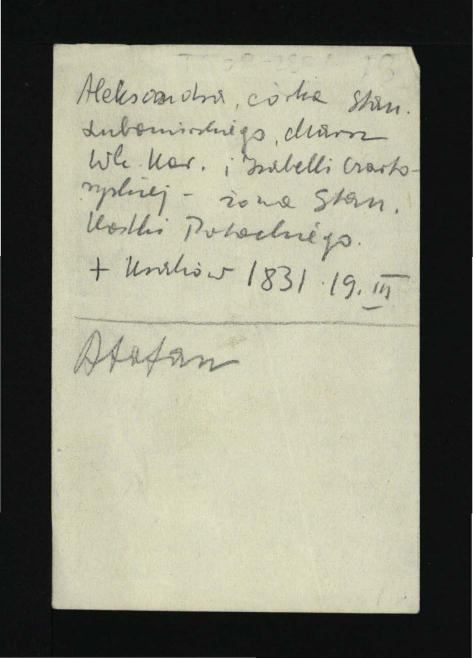 Aleksandra, córka Stan.
Lubomirskiego, Marsz
Wk. Kor. i Izabelli Czarto-
ryskiej – żona Stan.
Kostki Potockiego.
+ Kraków 1831 19. III
Stefan